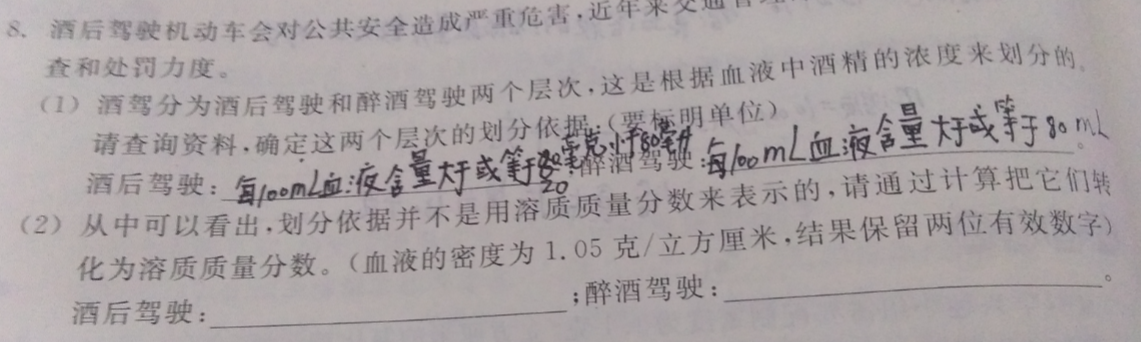 8. 酒后驾驶机动车会对公共安全造成严重危害,近年来交通管
查和处罚力度。
(1) 酒驾分为酒后驾驶和醉酒驾驶两个层次,这是根据血液中酒精的浓度来划分的。
请查询资料,确定这两个层次的划分依据:(要标明单位)
酒后驾驶:每100mL血液含量大于或等于20毫克小于80毫升;醉酒驾驶:每100mL血液含量大于或等于80mL。
(2) 从中可以看出,划分依据并不是用溶质质量分数来表示的,请通过计算把它们转
化为溶质质量分数。(血液的密度为 1.05 克/立方厘米,结果保留两位有效数字)
酒后驾驶:;醉酒驾驶:。